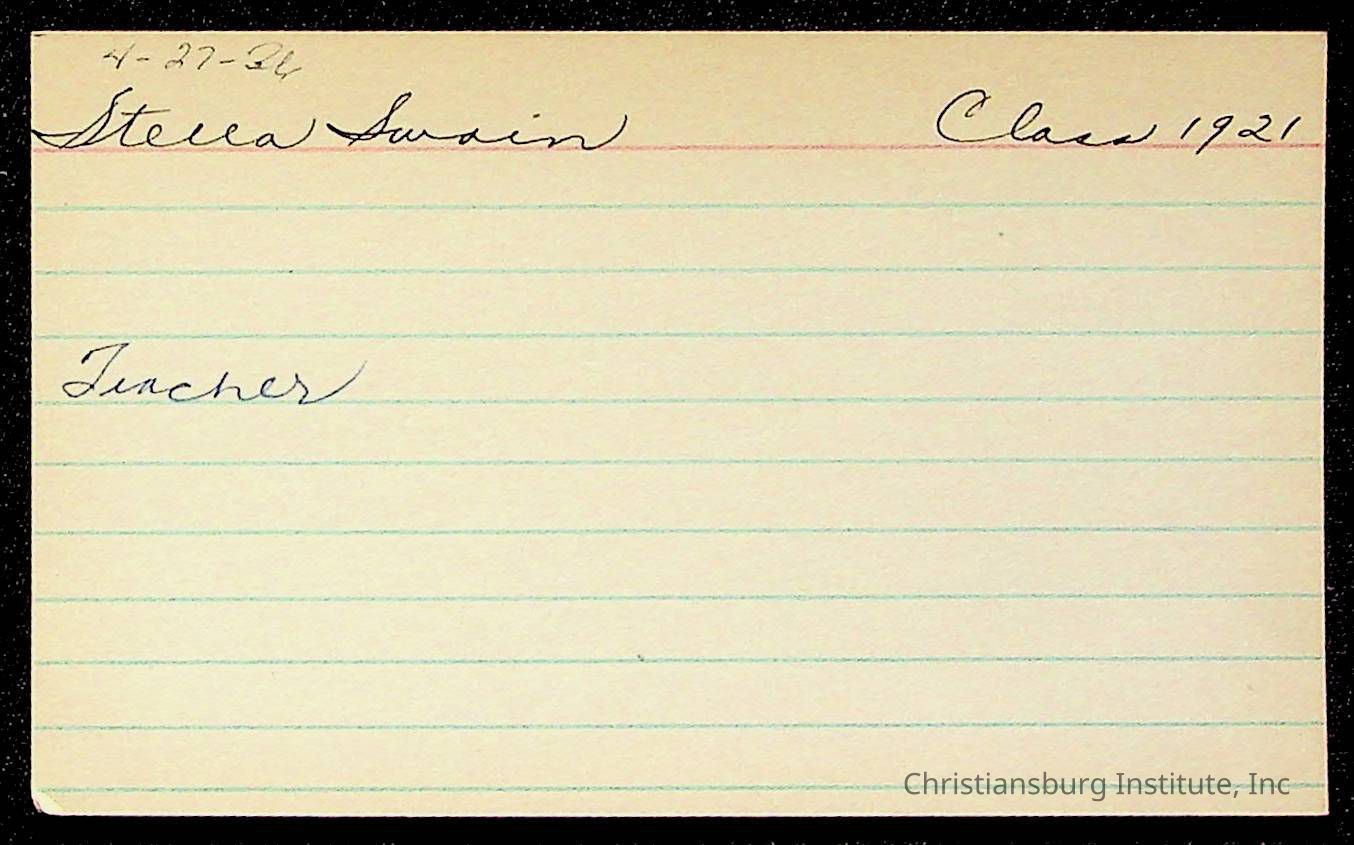 4-27-36
Stella Swain Class 1921
Teacher
Christiansburg Institute, Inc